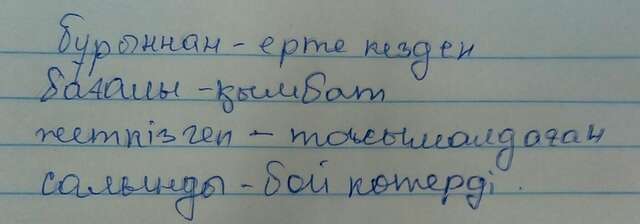 бұрыннан - ерте кезден
бағалы - қымбат
жеткізген - тасымалдаған
салынды - бой көтерді.